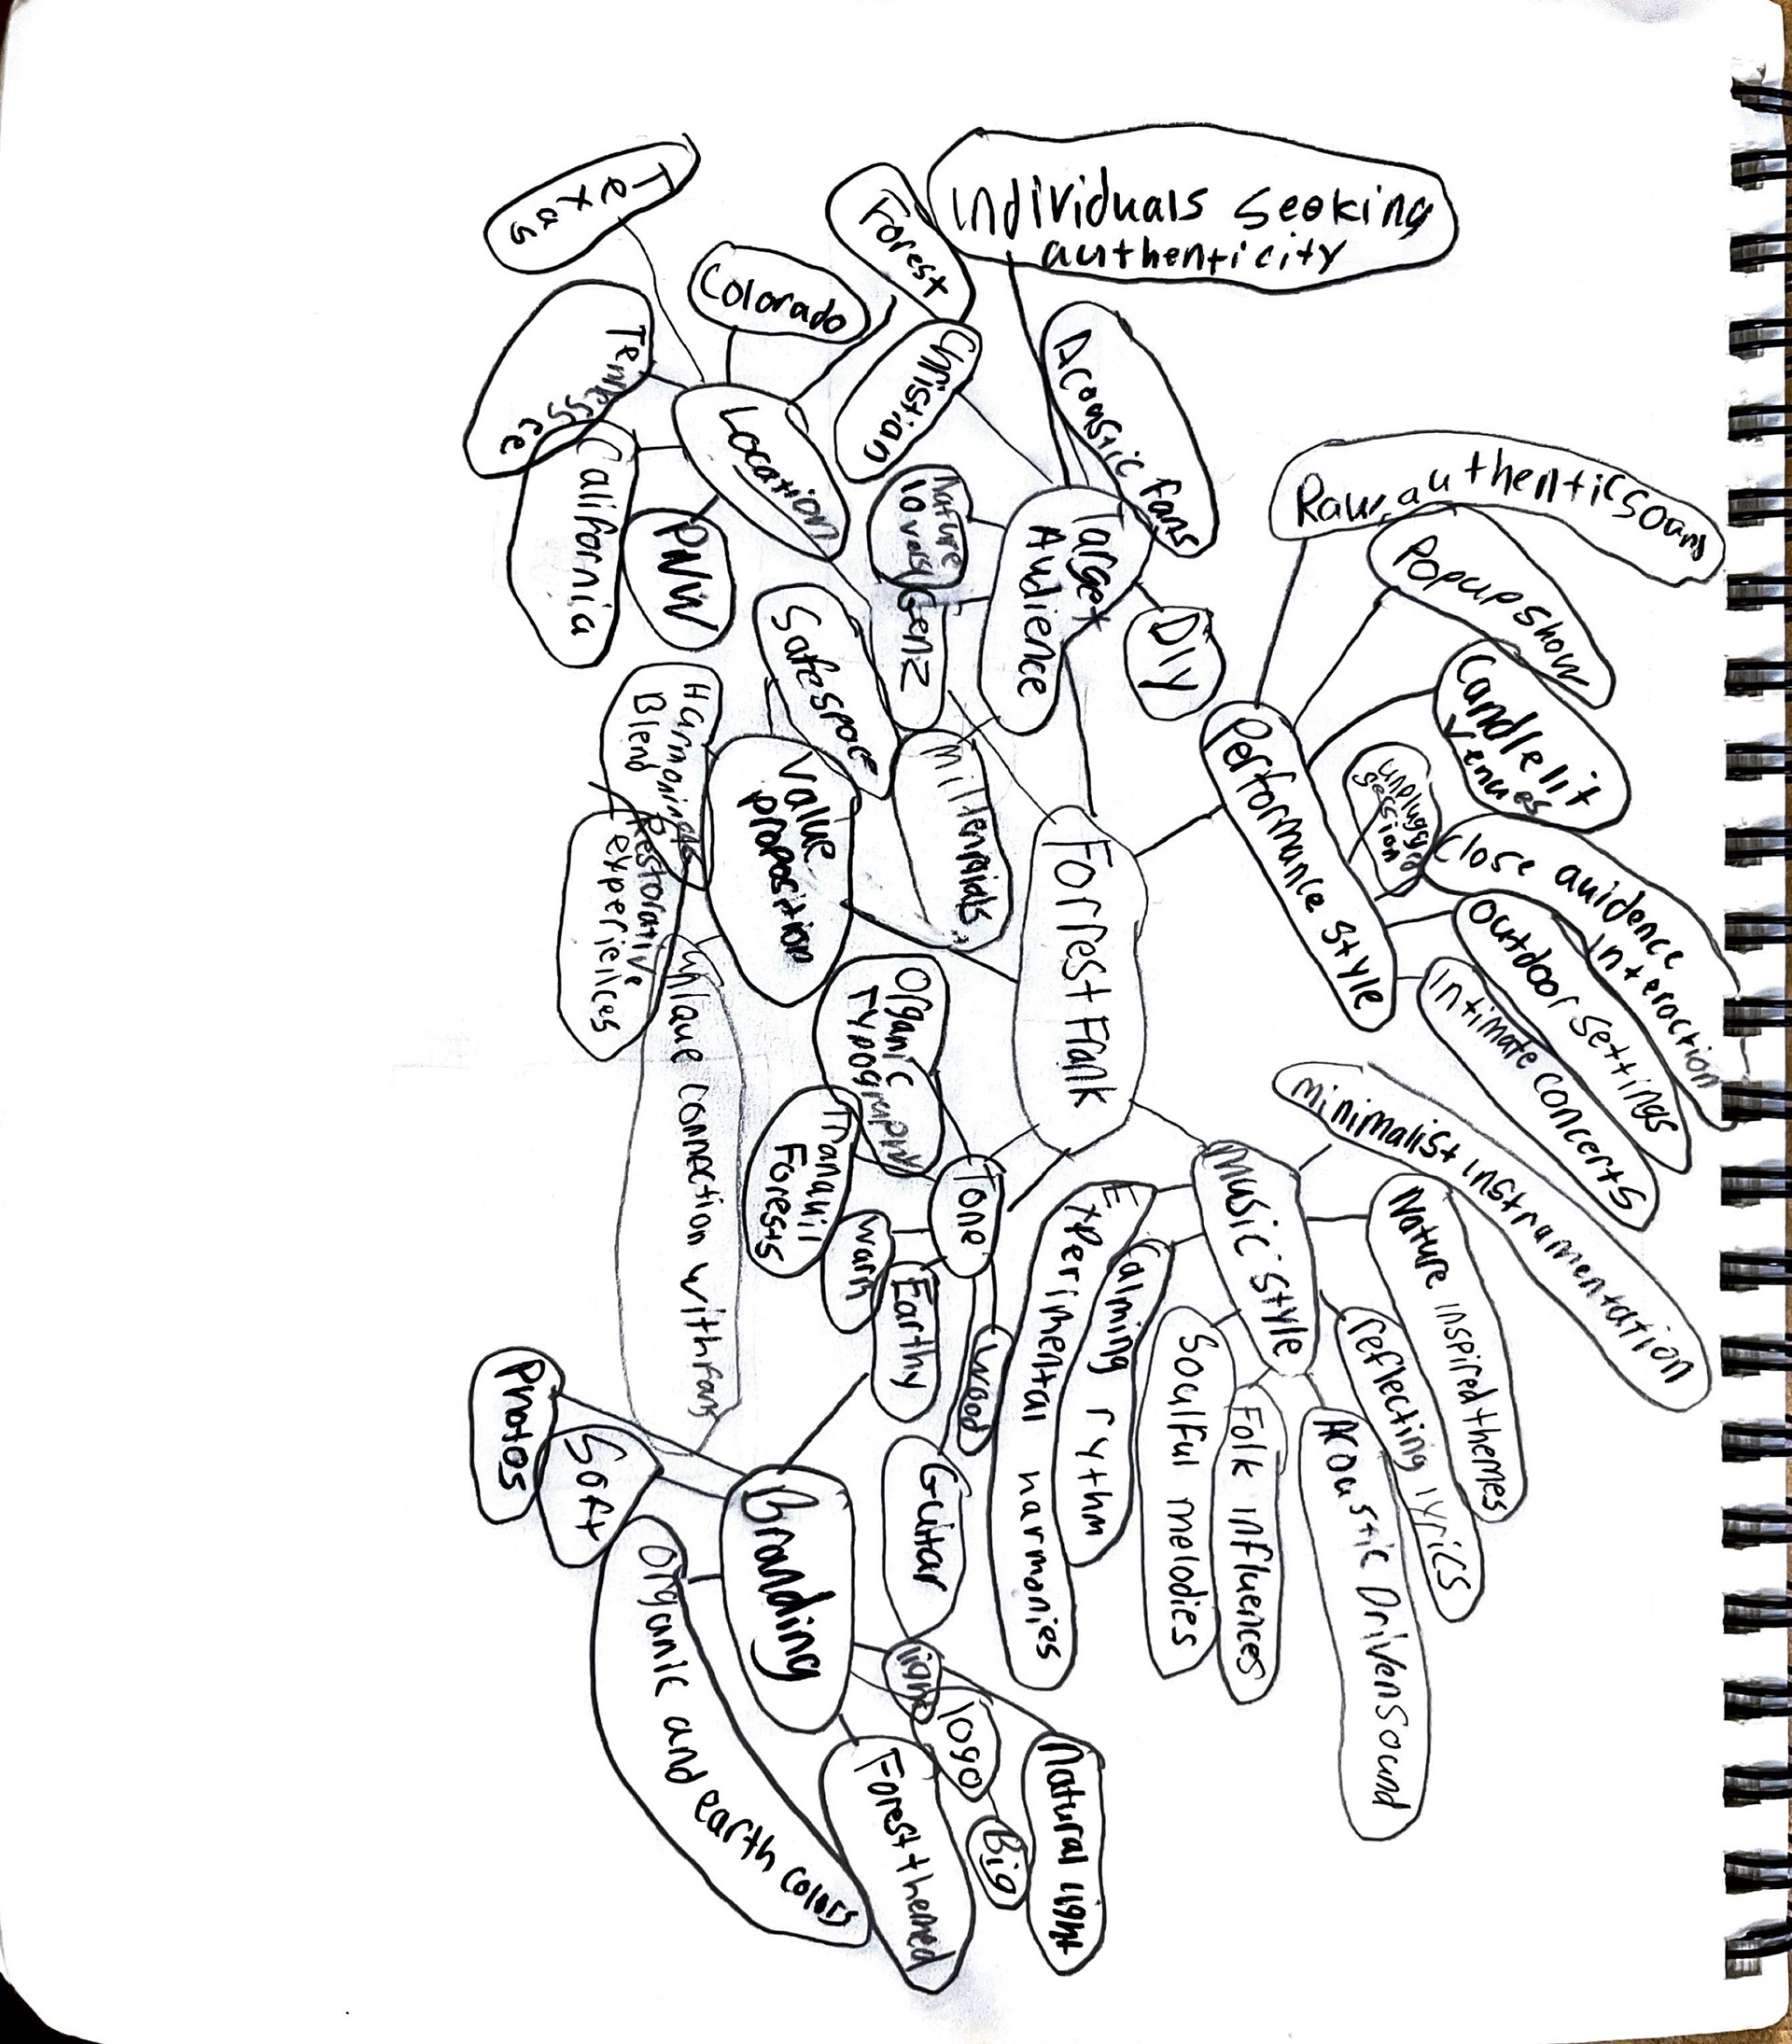 Individuals seeking
authenticity
Forest
Texas
Colorado
Christian
Acoustic fans
Tennessee
Location
California
PNW
Nature
lovers
Target
Audience
Gen Z
DIY
Raw, authentic
Popup show
Candlelit
Venues
unplugged
session
Performance style
Close auidence
interaction
Outdoor settings
Intimate concerts
Safe space
Harmonings
Blend
Value
proposition
Millennials
Restorative
experiences
Unique connection with fans
Forrest Frank
Organic
Typography
Tranquil
Forests
Tone
Warm
Earthy
Wood
Guitar
Music Style
minimalist instramentation
Nature inspired themes
reflecting lyrics
Acoustic Driven Sound
Folk influences
Soulful melodies
Calming rythm
Experimental harmonies
Photos
Soft
Branding
Organic and earth colors
light
logo
Big
Forest themed
Natural light